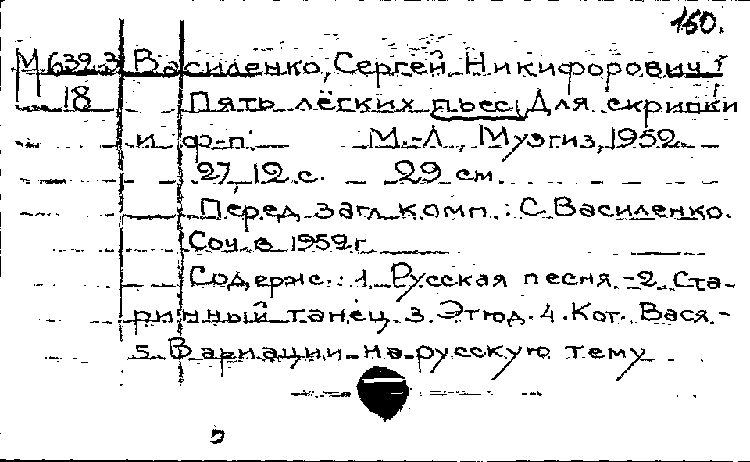 150.
М 639.3 Василенко, Сергей Никифорович
18 Пять лёгких пьес Для скрипки
и ф-п. М.-Л., Музгиз, 1952.
27, 12 с. 29 см.
Перед загл. комп.: С. Василенко.
Соч. в 1952 г.
Содерж.: 1. Русская песня. - 2. Ста-
ринный танец 3. Этюд. 4. Кот. Вася. -
5. Вариации на русскую тему